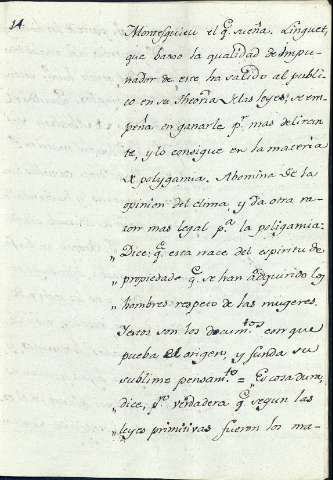 14
Montesquieu el q.e sueña. Linguet,
que baxo la qualidad de impug-
nador de este ha salido al publi-
co en su Theoria de las leyes; se em-
peña en ganarle p.r mas deliran-
te, y lo consigue en la materia
de polygamia. Abomina de la
opinion del clima, y da otra ra-
zon mas legal p.a la poligamia:
Dice: q.e esta nace del espiritu de
„ propiedad q.e se han adquirido los
„ hombres respeto de las mugeres.
Y estos son los docum.tos con que
prueba el origen, y funda su
sublime pensam.to = „ Es cosa dura,
„ dice, p.o verdadera q.e segun las
„ leyes primitivas fueron los ma-